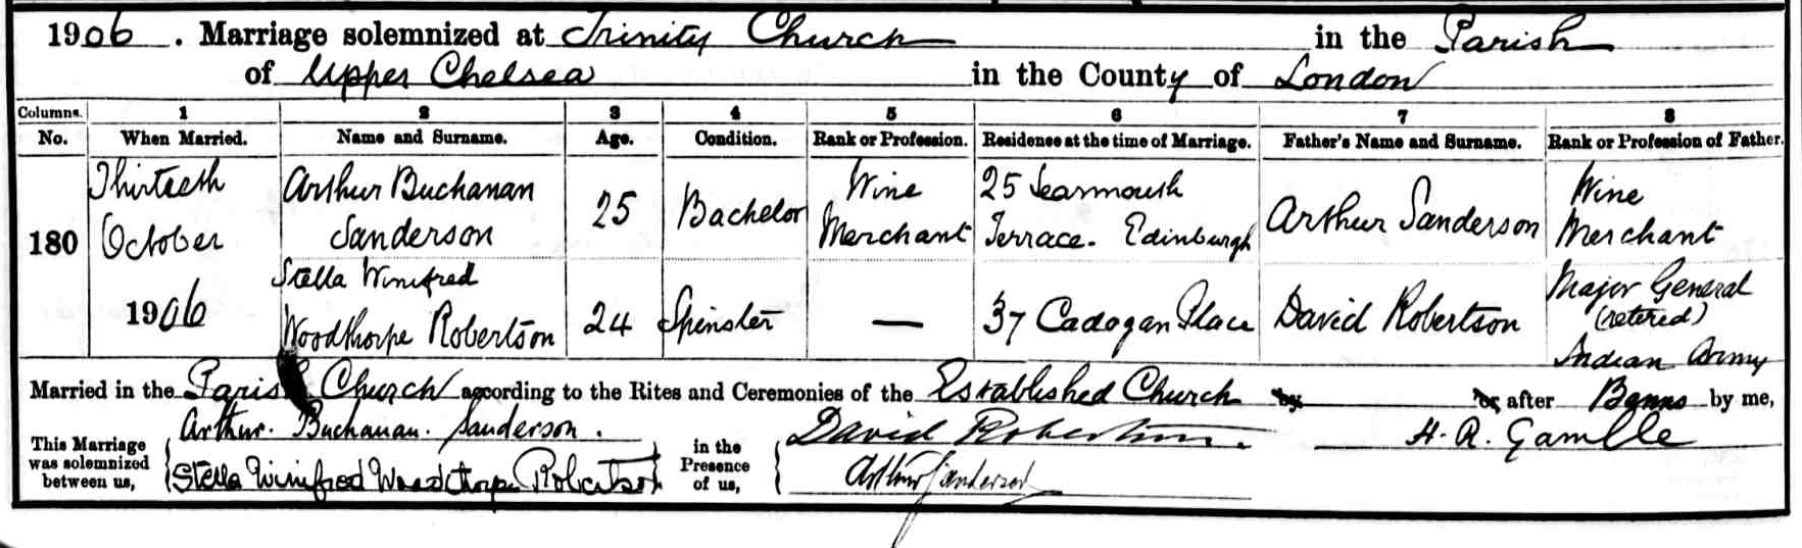 1906. Marriage solemnized at Trinity Church in the Parish
of Upper Chelsea in the County of London
Columns. 1 2 3 4 5 6 7 8
No. When Married. Name and Surname. Age. Condition. Rank or Profession. Residence at the time of Marriage. Father's Name and Surname. Rank or Profession of Father.
180
Thirteeth
October
1906
Arthur Buchanan
Sanderson
25
Bachelor
Wine
Merchant
25 Learmouth
Terrace. Edinburgh
Arthur Sanderson
Wine
Merchant
Stella Winifred
Woodthorpe Robertson
24
Spinster
—
37 Cadogan Place
David Robertson
Major General
(retered)
Indian Army
Married in the Parish Church according to the Rites and Ceremonies of the Established Church by or after Banns by me,
This Marriage
was solemnized
between us,
Arthur. Buchanan. Sanderson.
Stella Winifred Woodthorpe Robertson
in the
Presence
of us,
David Robertson.
Arthur Sanderson
H. R. Gamble